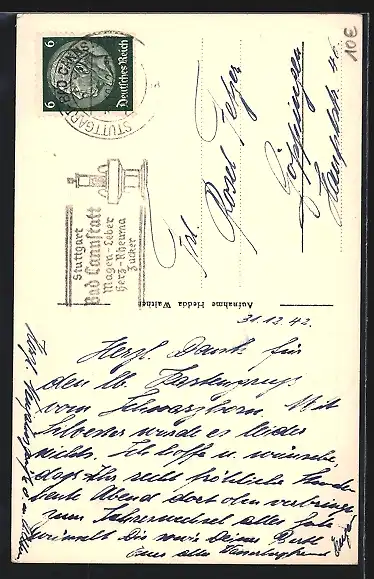 10€
6 6
Deutsches Reich
STUTTGART-BAD CANNSTATT
Stuttgart
Bad Cannstatt
Magen-Leber
Herz-Rheuma
Zucker
Frl.
Rosel
Göppingen
Hauptstr. 41
Aufnahme Hedda Walther
31.12.42.
Herzl. Dank für
den lb. Kartengruss
vom Schwarzhorn. Mit
Silvester wurde es leider
nichts. Ich hoffe u. wünsche,
dass Ihr recht fröhliche Stunden
heute Abend dort oben verbringt
zum Jahreswechsel alles Gute
wünscht Dir sowie Deiner
Euer alter